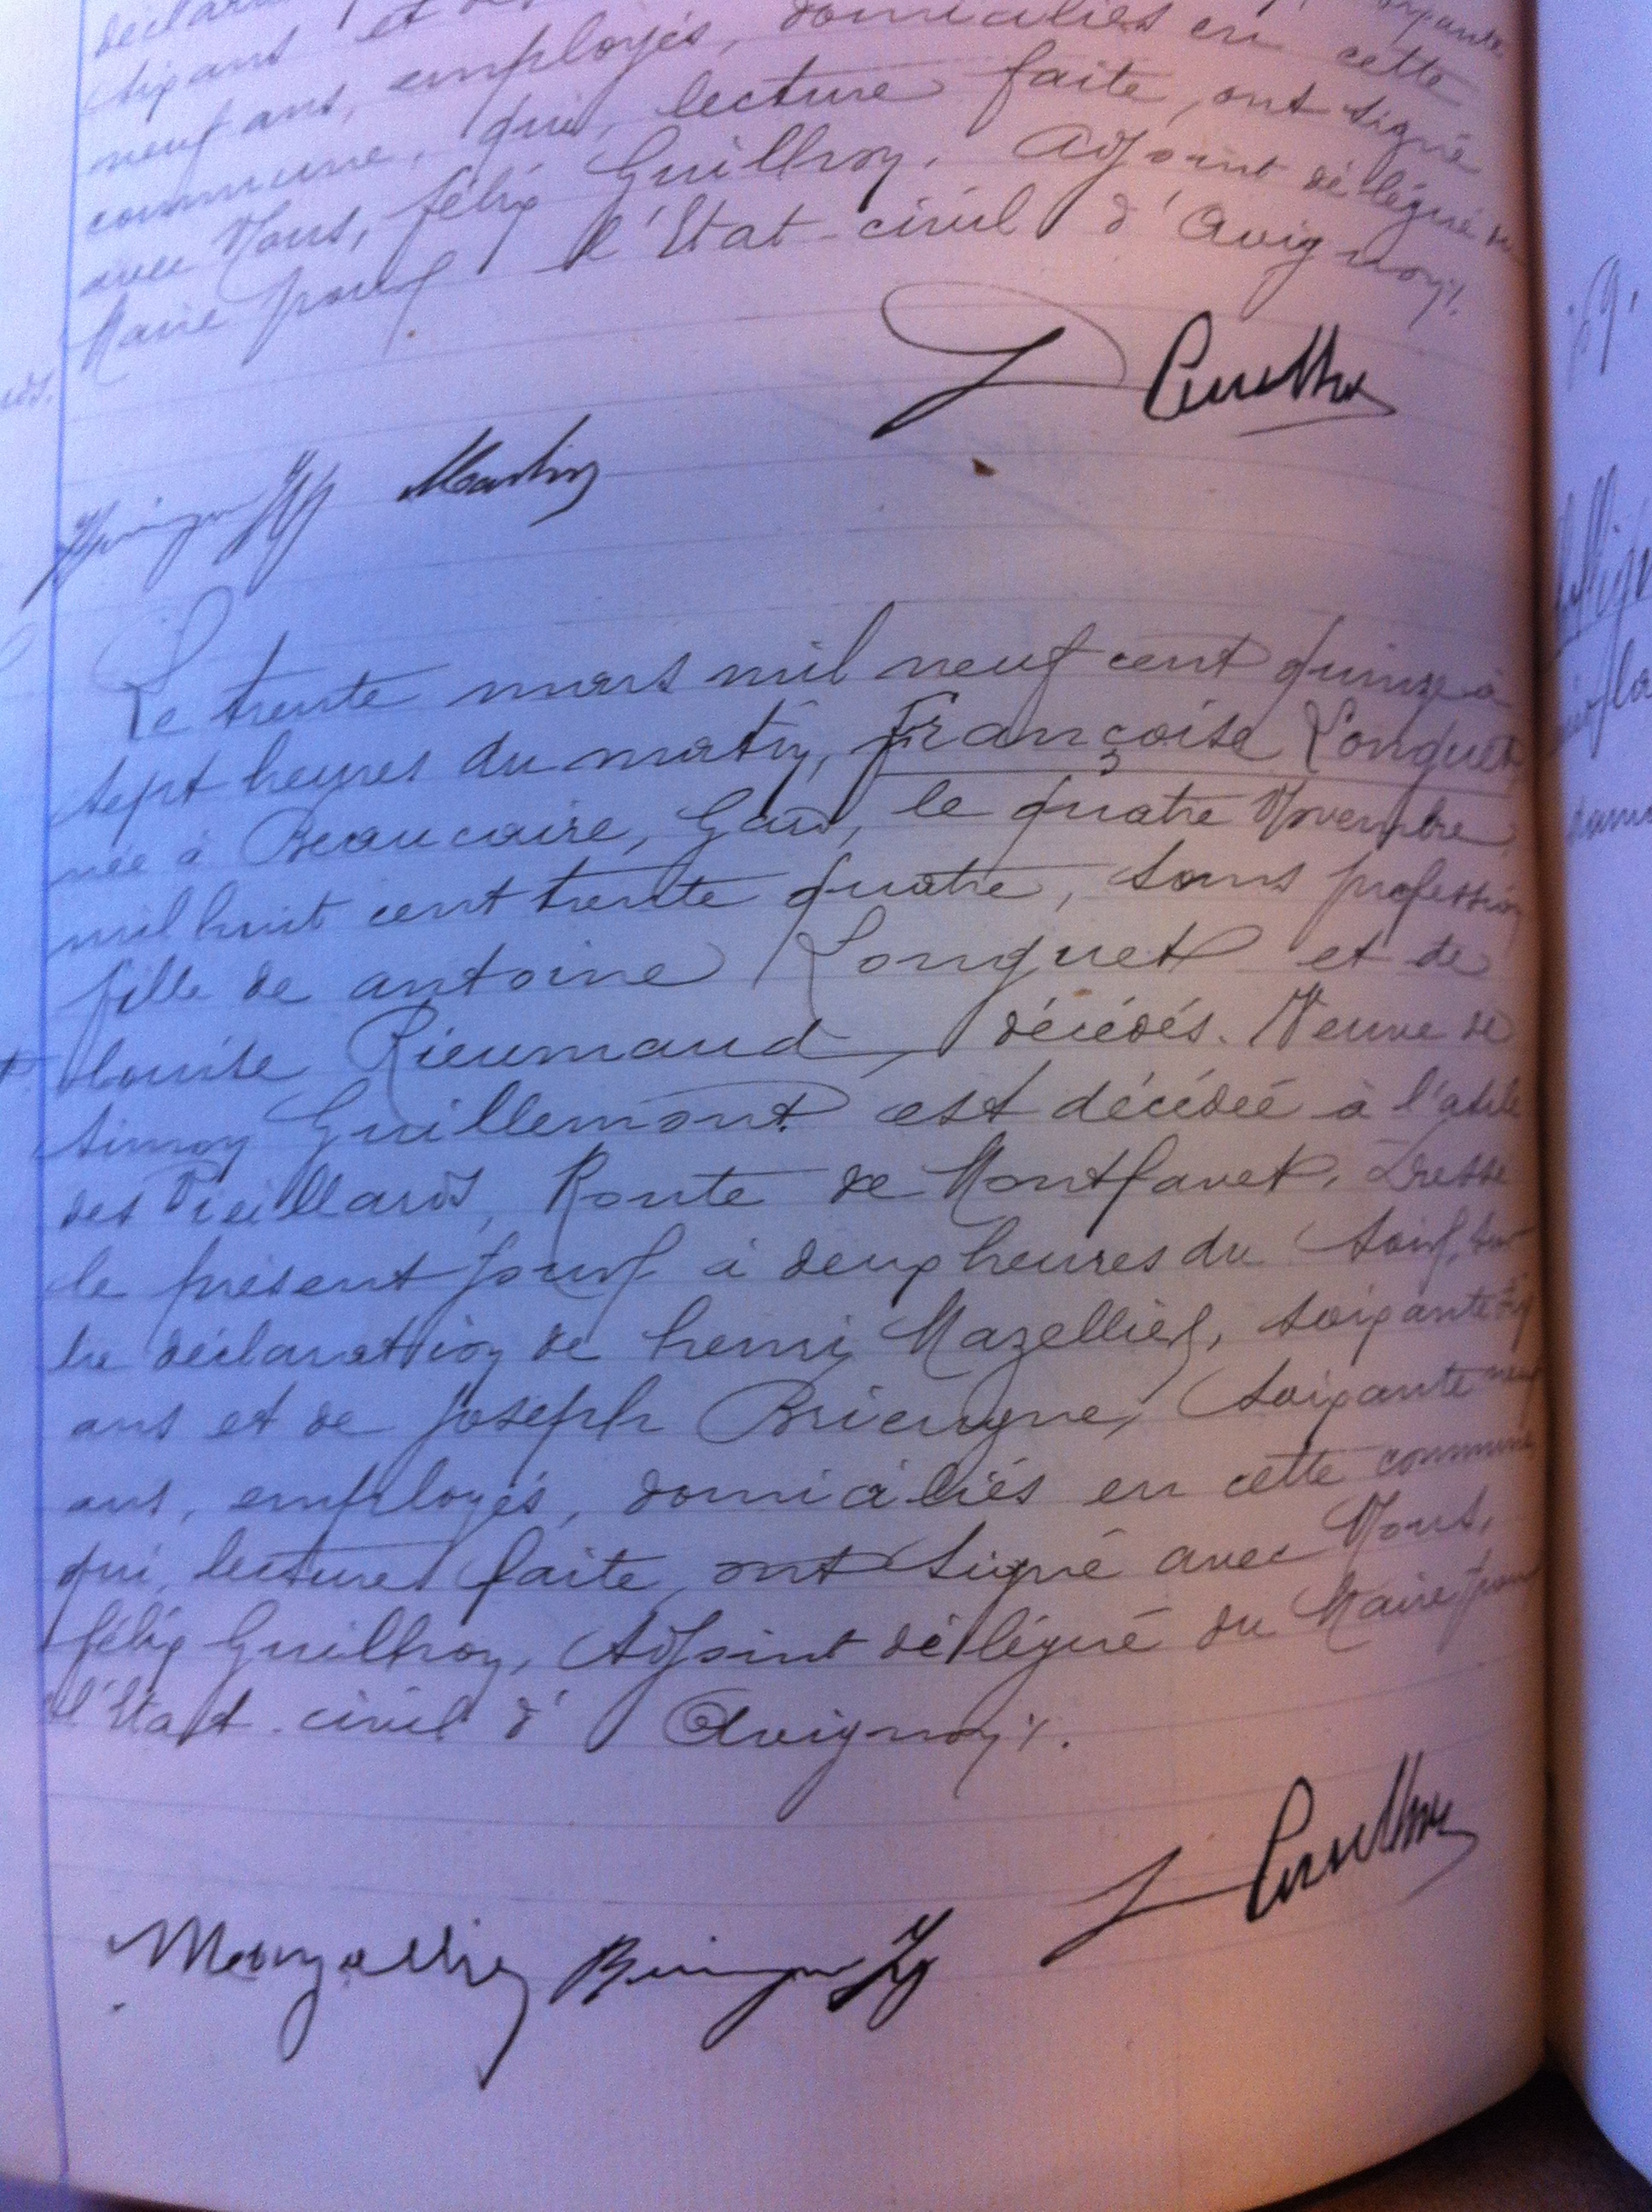 ans et de
neuf ans, employés, domiciliés en cette
commune, qui, lecture faite, ont signé
avec Nous, félix Guilhon, Adjoint délégué du
Maire pour l'Etat-civil d'Avignon ./.
Martin
Le trente mars mil neuf cent quinze à
sept heures du matin, Françoise Longuet
née à Beaucaire, Gard, le quatre Novembre
mil huit cent trente quatre, sans profession
fille de antoine Longuet et de
louise Rieumaud, décédés. Veuve de
simon Guillemont. est décédée à l'asile
des Vieillards, Route de Montfavet. Dressé
le présent jour à deux heures du soir, sur
la déclaration de henri Mazellier, soixante six
ans et de joseph Briengne, soixante neuf
ans, employés, domiciliés en cette commune
qui, lecture faite, ont signé avec Nous,
félix Guilhon, Adjoint délégué du Maire pour
l'Etat-civil d'Avignon ./.